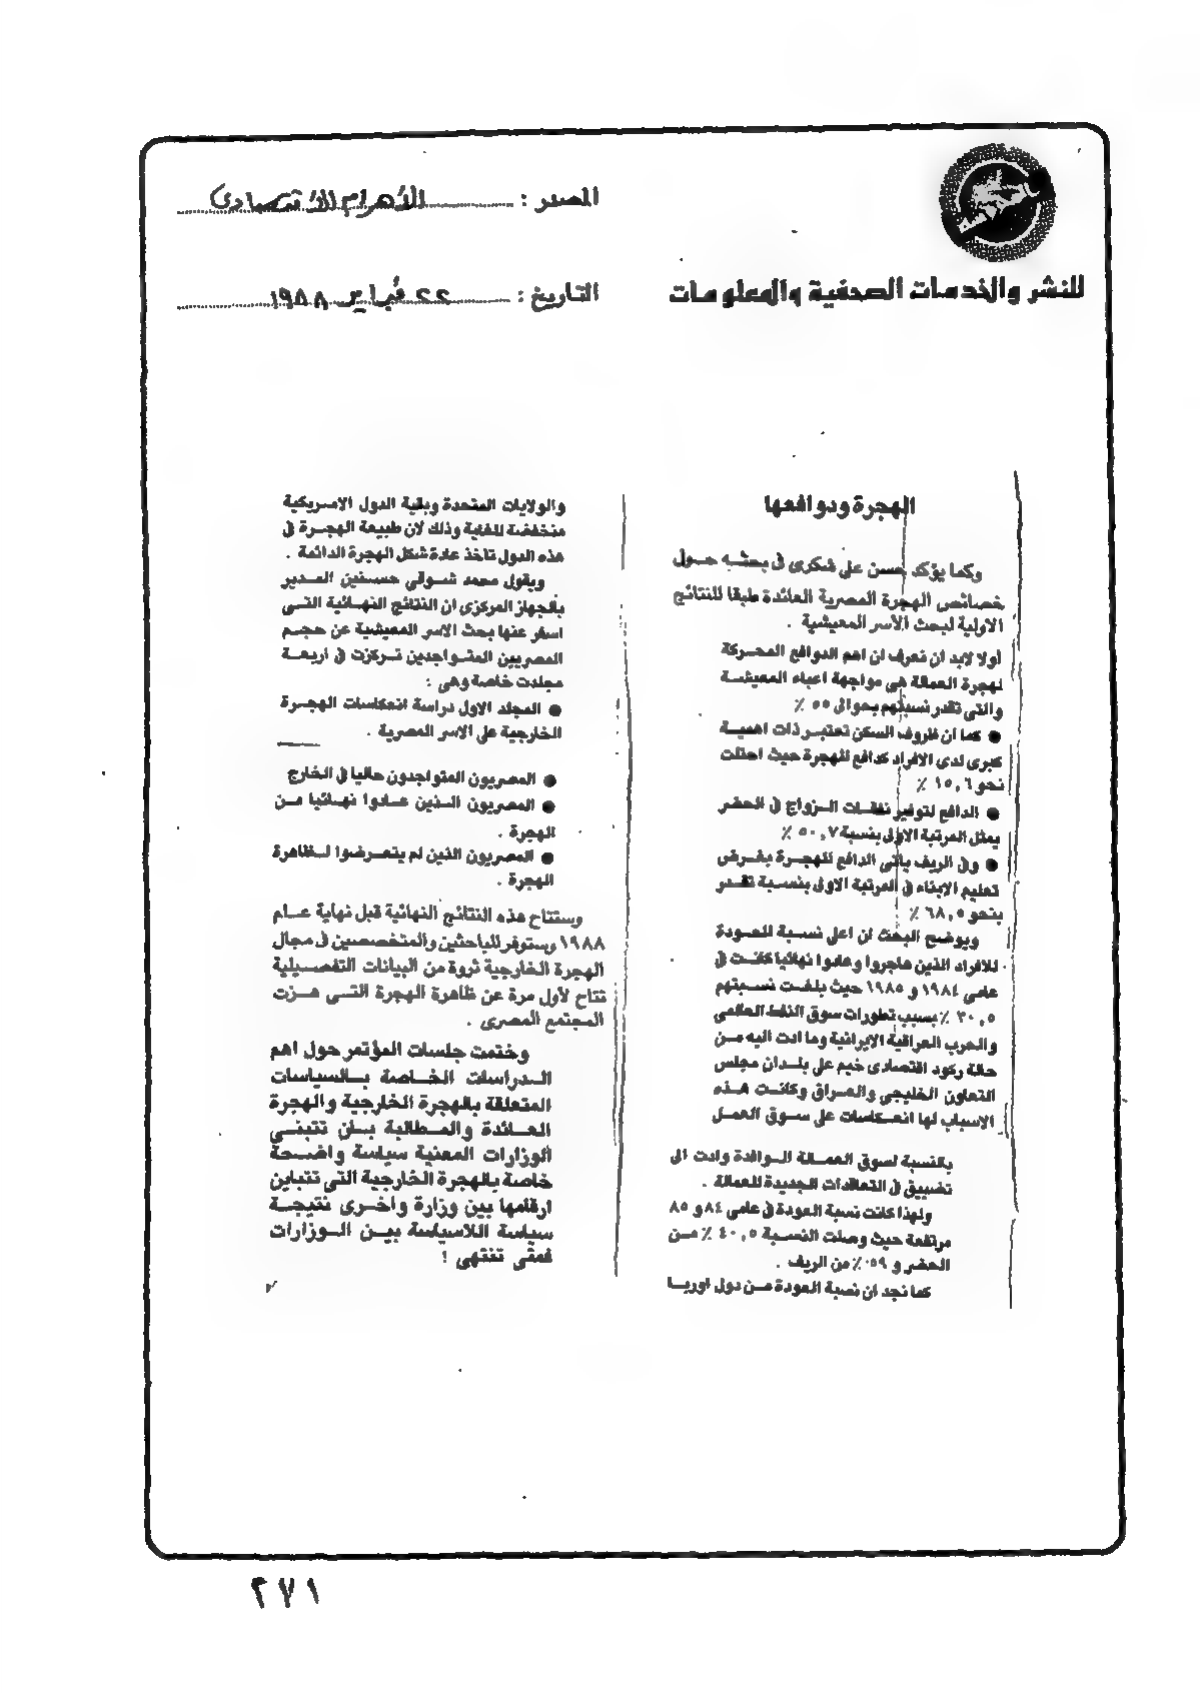 المصدر : الأهرام الاقتصادى
للنشر والخدمات الصحفية والمعلومات
التاريخ : ٢٢ فبراير ١٩٨٨
الهجرة ودوافعها
وكما يؤكد حسن على شكرى فى بحثه حول
خصائص الهجرة المصرية العائدة طبقا للنتائج
الاولية لبحث الأسر المعيشية .
أولا لابد ان نعرف ان اهم الدوافع المحركة
لهجرة العمالة هى مواجهة اعباء المعيشة
والتى تقدر نسبتهم بحوالى ٥٥ ٪
● كما ان ظروف السكن تعتبر ذات اهمية
كبرى لدى الافراد كدافع للهجرة حيث احتلت
نحو ١٥,٦ ٪
● الدافع لتوفير نفقات الزواج فى الحضر
يمثل المرتبة الاولى بنسبة ٥٠,٧ ٪
● وفى الريف ياتى الدافع للهجرة بغرض
تعليم الابناء فى المرتبة الاولى بنسبة تقدر
بنحو ٦٨,٥ ٪
ويوضح البحث ان اعلى نسبة للعودة
للافراد الذين هاجروا وعادوا نهائيا كانت فى
عامى ١٩٨٤ و ١٩٨٥ حيث بلغت نسبتهم
٣٠,٥ ٪ بسبب تطورات سوق النفط العالمى
والحرب العراقية الايرانية وما ادت اليه من
حالة ركود اقتصادى خيم على بلدان مجلس
التعاون الخليجى والعراق وكانت هذه
الاسباب لها انعكاسات على سوق العمل
بالنسبة لسوق العمالة الوافدة وادت الى
تضييق فى التعاقدات الجديدة للعمالة .
ولهذا كانت نسبة العودة فى عامى ٨٤ و ٨٥
مرتفعة حيث وصلت النسبة ٤٠,٥ ٪ من
الحضر و ٥٩٪ من الريف .
كما نجد ان نصبة العودة من دول اوربا
والولايات المتحدة وبقية الدول الامريكية
منخفضة للغاية وذلك لان طبيعة الهجرة فى
هذه الدول تاخذ عادة شكل الهجرة الدائمة .
ويقول محمد شوقى حسنين المدير
بالجهاز المركزى ان النتائج النهائية التى
اسفر عنها بحث الاسر المعيشية عن حجم
المصريين المتواجدين تركزت فى اربعة
مجلدت خاصة وهى :
● المجلد الاول دراسة انعكاسات الهجرة
الخارجية على الاسر المصرية .
● المصريون المتواجدون حاليا فى الخارج
● المصريون الذين عادوا نهائيا من
الهجرة .
● المصريون الذين لم يتعرضوا لظاهرة
الهجرة .
وستتاح هذه النتائج النهائية قبل نهاية عام
١٩٨٨ وستوفر للباحثين والمتخصصين فى مجال
الهجرة الخارجية ثروة من البيانات التفصيلية
تتاح لأول مرة عن ظاهرة الهجرة التى هزت
المجتمع المصرى .
وختمت جلسات المؤتمر حول اهم
الدراسات الخاصة بالسياسات
المتعلقة بالهجرة الخارجية والهجرة
العائدة والمطالبة بان تتبنى
الوزارات المعنية سياسة واضحة
خاصة بالهجرة الخارجية التى تتباين
ارقامها بين وزارة واخرى نتيجة
سياسة اللاسياسة بين الوزارات
فمتى تنتهى !
٢٧١